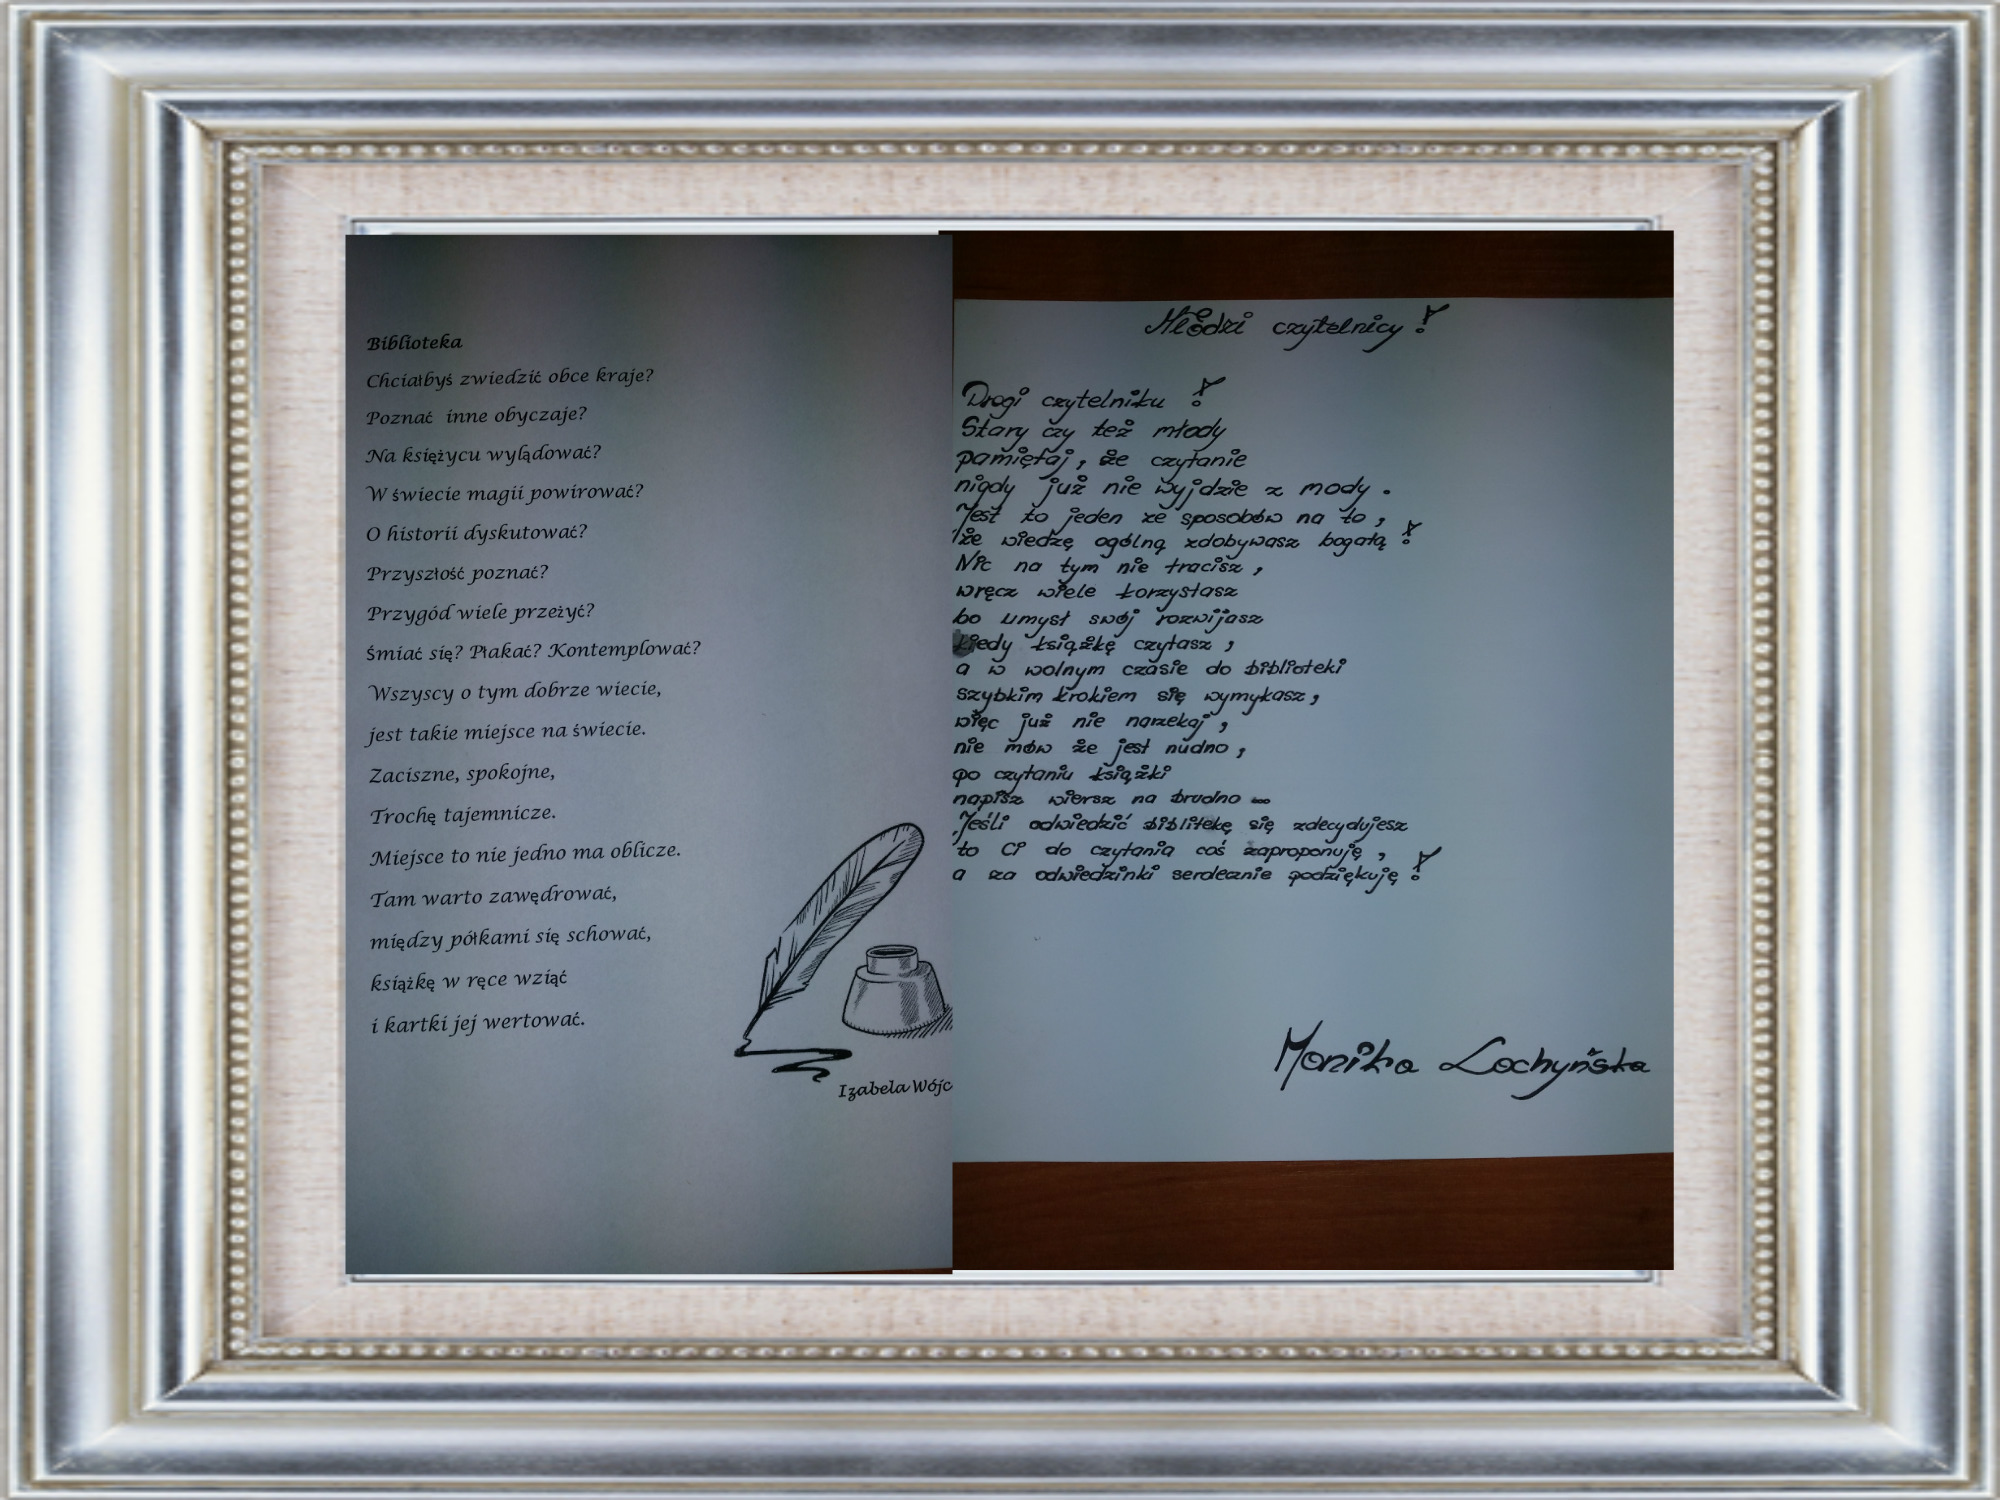 Biblioteka
Chciałbyś zwiedzić obce kraje?
Poznać inne obyczaje?
Na księżycu wylądować?
W świecie magii powirować?
O historii dyskutować?
Przyszłość poznać?
Przygód wiele przeżyć?
Śmiać się? Płakać? Kontemplować?
Wszyscy o tym dobrze wiecie,
jest takie miejsce na świecie.
Zaciszne, spokojne,
Trochę tajemnicze.
Miejsce to nie jedno ma oblicze.
Tam warto zawędrować,
między półkami się schować,
książkę w ręce wziąć
i kartki jej wertować.
Izabela Wójc
Młodzi czytelnicy!
Drogi czytelniku!
Stary czy też młody
pamiętaj, że czytanie
nigdy już nie wyjdzie z mody.
Jest to jeden ze sposobów na to,
że wiedzę ogólną zdobywasz bogatą!
Nic na tym nie tracisz,
wręcz wiele korzystasz
bo umysł swój rozwijasz
kiedy książkę czytasz,
a w wolnym czasie do biblioteki
szybkim krokiem się wymykasz,
więc już nie narzekaj,
nie mów że jest nudno,
po czytaniu książki
napisz wiersz na brudno...
Jeśli odwiedzić biblitekę się zdecydujesz
to Ci do czytania coś zaproponuję,
a za odwiedzinki serdecznie podziękuję!
Monika Lochyńska